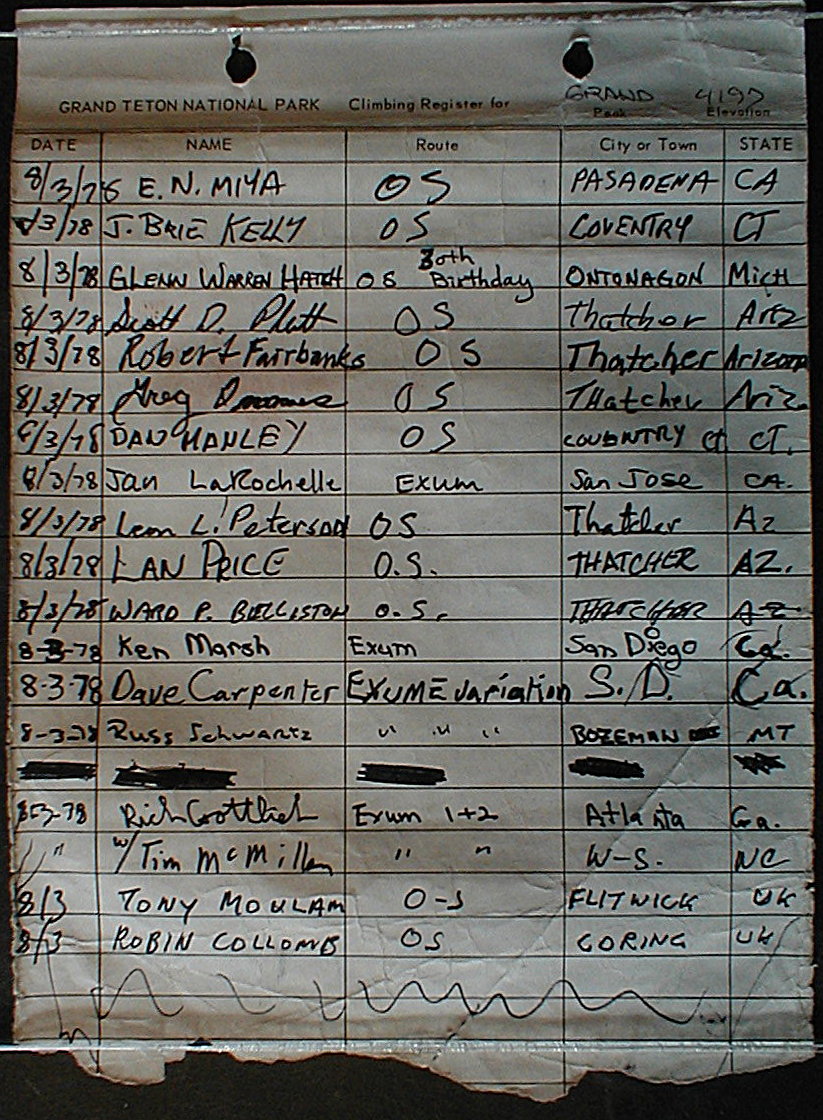 GRAND TETON NATIONAL PARK Climbing Register for GRAND 4197
Peak Elevation
DATE NAME Route City or Town STATE
8/3/78 E.N. MIYA OS PASADENA CA
8/3/78 J. BRIE KELLY OS COVENTRY CT
8/3/78 GLENN WARREN HATCH OS 30th Birthday ONTONAGON Mich
8/3/78 Scott D. Platt OS Thatcher Ariz
8/3/78 Robert Fairbanks OS Thatcher Arizona
8/3/78 Greg OS Thatcher Ariz
8/3/78 DAN MANLEY OS COVENTRY ct CT.
8/3/78 Jan LaRochelle Exum San Jose CA.
8/3/78 Leon L. Peterson OS Thatcher Az
8/3/78 LAN PRICE O.S. THATCHER AZ.
8/3/78 WARD P. BELLISTON O.S. THATCHER AZ
8-3-78 Ken Marsh Exum San Diego Ca.
8-3-78 Dave Carpenter EXUME variation S.D. Ca.
8-3-78 Russ Schwartz " " " BOZEMAN MT
8-3-78 Rich Gottlieb Exum 1+2 Atlanta Ga.
" w/ Tim McMillan " " W-S. NC
8/3 TONY MOULAM O-S FLITWICK UK
8/3 ROBIN COLLOMB OS GORING UK